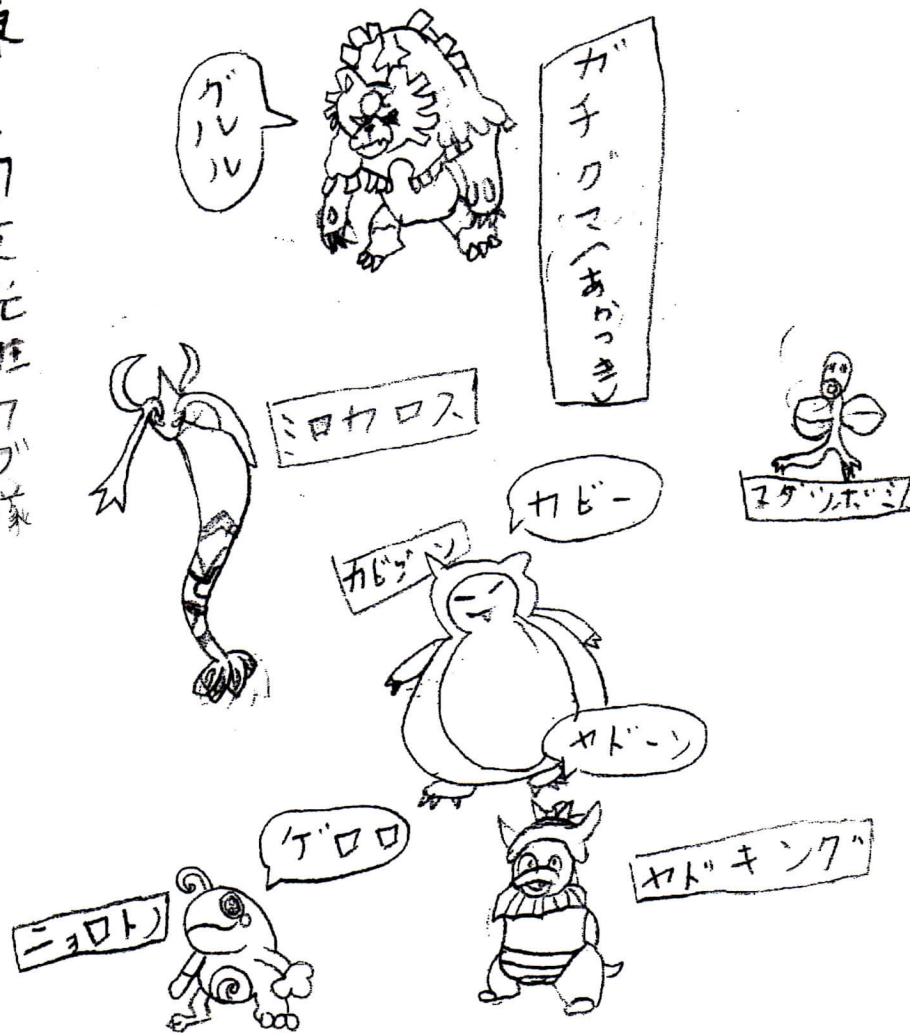 グルル
ガチグマ(あかつき)
ミロカロス
マダツボミ
カビー
カビゴン
ヤドーン
ゲロロ
ニョロトノ
ヤドキング